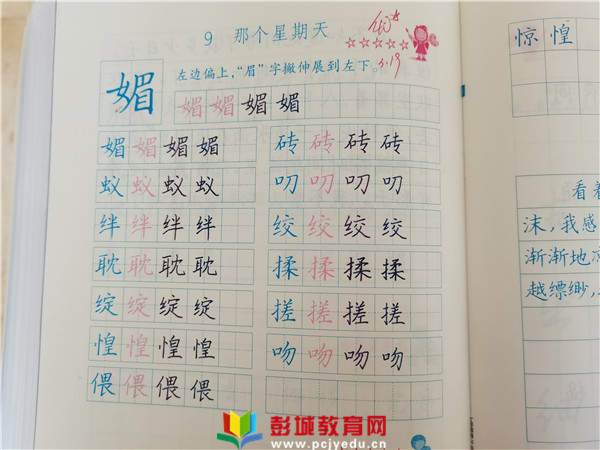 9 那个星期天
优★
5.19
左边偏上，“眉”字撇伸展到左下。
媚 媚 媚 媚 媚
媚 媚 媚 媚
蚁 蚁 蚁 蚁
绊 绊 绊 绊
耽 耽 耽 耽
绽 绽 绽 绽
惶 惶 惶 惶
偎 偎 偎 偎
砖 砖 砖 砖
叨 叨 叨 叨
绞 绞 绞 绞
揉 揉 揉 揉
搓 搓 搓 搓
吻 吻 吻 吻
惊 惶
看着
沫，我感
渐渐地
越缥缈，
彭城教育网
www.pcjyedu.cn